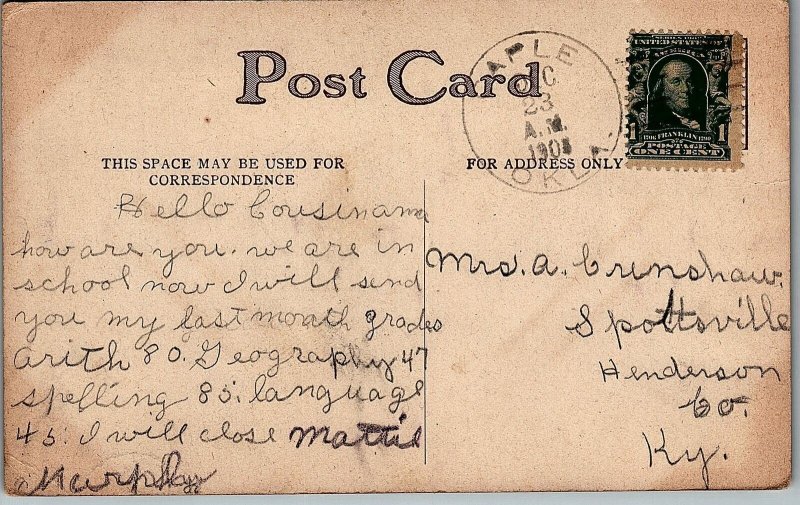 Post Card
APLE
C
23
A.M.
190
OKLA.
SERIES 1902
UNITED STATES OF AMERICA
1706 FRANKLIN 1790
1 1
POSTAGE
ONE CENT
THIS SPACE MAY BE USED FOR
CORRESPONDENCE
FOR ADDRESS ONLY
Hello Cousin ama
how are you. we are in
school now I will send
you my last month grades
arith 80. Geography 47
spelling 85. language
45. I will close Mattie
Murphy
Mrs. A. Crenshaw.
Spottsville
Henderson
Co.
Ky.